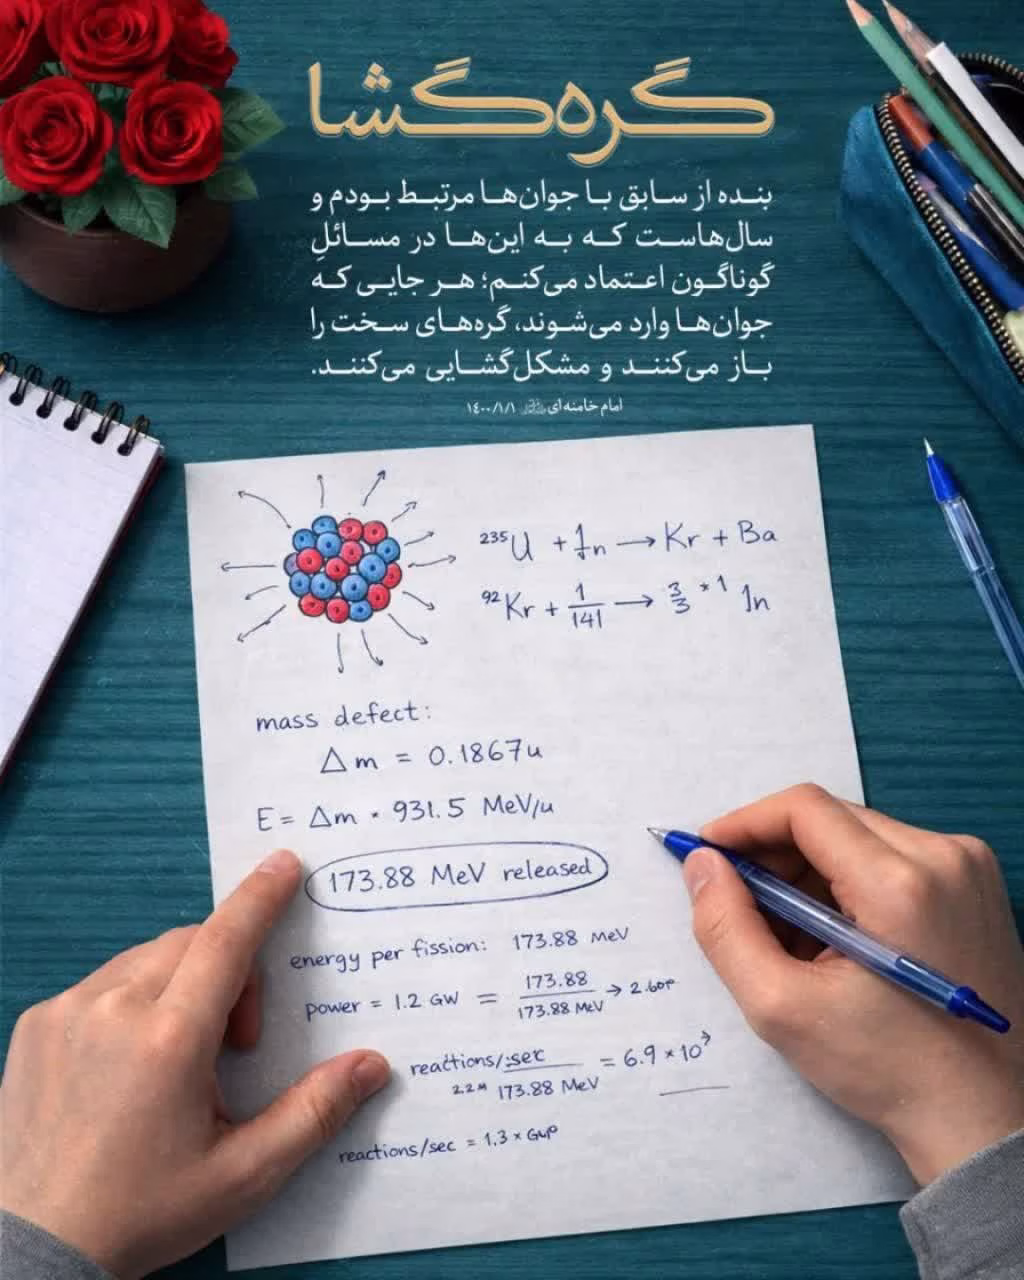 گره‌گشا
بنده از سابق با جوان‌ها مرتبط بودم و
سال‌هاست که به این‌ها در مسائلِ
گوناگون اعتماد می‌کنم؛ هر جایی که
جوان‌ها وارد می‌شوند، گره‌های سخت را
باز می‌کنند و مشکل‌گشایی می‌کنند.
امام خامنه‌ای ۱۴۰۰/۱/۱
²³⁵U + 1/n → Kr + Ba
⁹²Kr + 1/141 → 3/3 * 1 1n
mass defect:
Δm = 0.1867u
E = Δm * 931.5 MeV/u
173.88 MeV released
energy per fission: 173.88 MeV
power = 1.2 GW = 173.88 / 173.88 MeV →
reactions/sec / 173.88 MeV = 6.9 × 10
reactions/sec = 1.3 ×